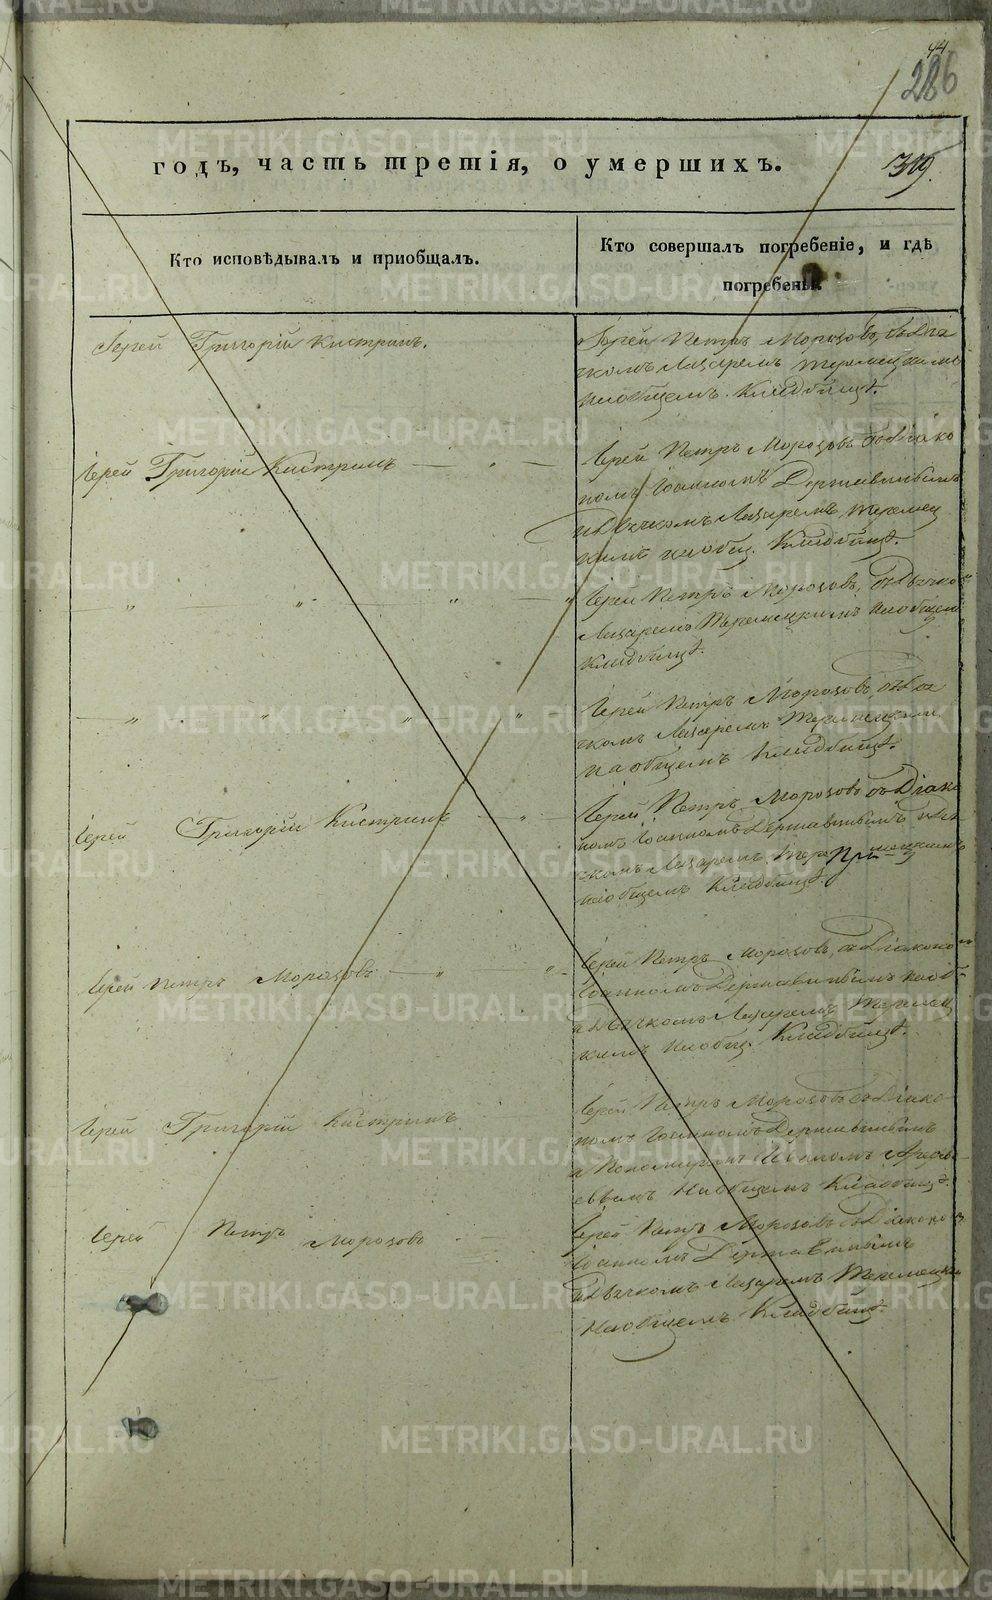 44
286
годъ, часть третія, о умершихъ.
319.
Кто исповѣдывалъ и приобщалъ.
Кто совершалъ погребеніе, и гдѣ
погребены.
Іерей Григорій Кистринъ.
Іерей Петръ Морозовъ, съ Дья
чкомъ Лазаремъ
на общемъ Кладбищѣ.
Іерей Григорій Кистринъ — „ —
Іерей Петръ Морозовъ съ Діако
номъ Іоанномъ Державинымъ
и Дьячкомъ Лазаремъ Теремец
кимъ на общ. Кладбищѣ.
„ „ „ „
Іерей Петръ Морозовъ, съ Дьячко
Лазаремъ Теремецкимъ на общем
Кладбищѣ.
„ „ „ „
Іерей Петръ Морозовъ, съ Дья
чкомъ Лазаремъ
на общемъ Кладбищѣ.
Іерей Григорій Кистринъ „
Іерей Петръ Морозовъ съ Діако
номъ Іоанномъ Державинымъ и Дья
чкомъ Лазаремъ
на общемъ Кладбищѣ.
Іерей Петръ Морозовъ — „ „ —
Іерей Петръ Морозовъ, съ Діаконо
Іоанномъ Державинымъ
и Дьячкомъ Лазаремъ Теремец
кимъ на общ. Кладбищѣ.
Іерей Григорій Кистринъ
Іерей Петръ Морозовъ съ Діако
номъ Іоанномъ Державинымъ
и Пономаремъ Иваномъ
на общемъ Кладбищѣ.
Іерей Петръ Морозовъ
Іерей Петръ Морозовъ съ Діаконо
Іоанномъ Державинымъ
и Дьячкомъ Лазаремъ Теремецки
на общемъ Кладбищѣ.
METRIKI.GASO-URAL.RU